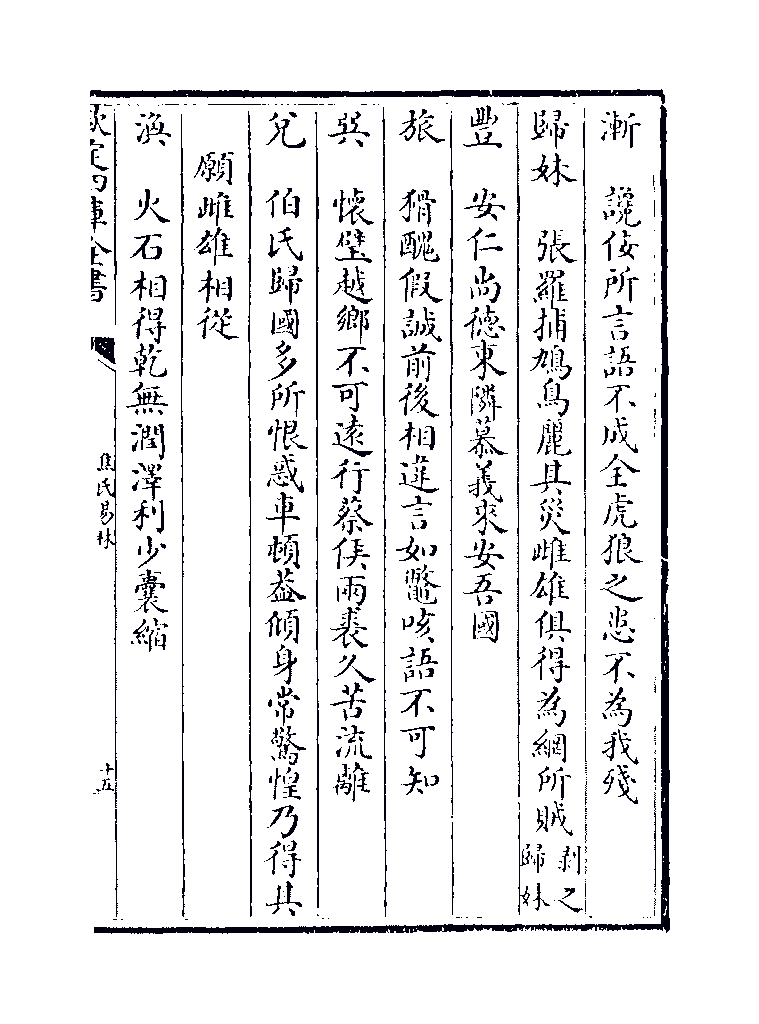 漸　說佞所言語不成全虎狼之患不為我殘
歸妹　張羅捕鳩鳥麗其災雌雄俱得為網所賊剥之歸妹
豐　安仁尚德東隣慕義來安吾國
旅　猾醜假誠前後相違言如鼈咳語不可知
巽　懷璧越鄉不可遠行蔡侯兩裘久苦流離
兌　伯氏歸國多所恨惑車頓蓋傾身常驚惶乃得其
願雌雄相從
渙　火石相得乾無潤澤利少囊縮
欽定四庫全書
焦氏易林
十五